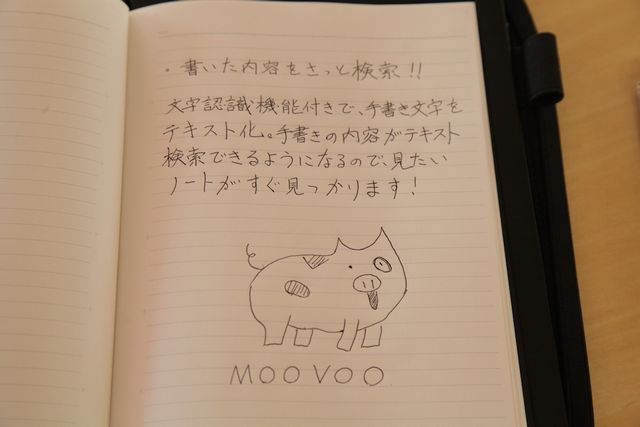 ・書いた内容をさっと検索!!
文字認識機能付きで、手書き文字を
テキスト化。手書きの内容がテキスト
検索できるようになるので、見たい
ノートがすぐ見つかります!
MOOVOO